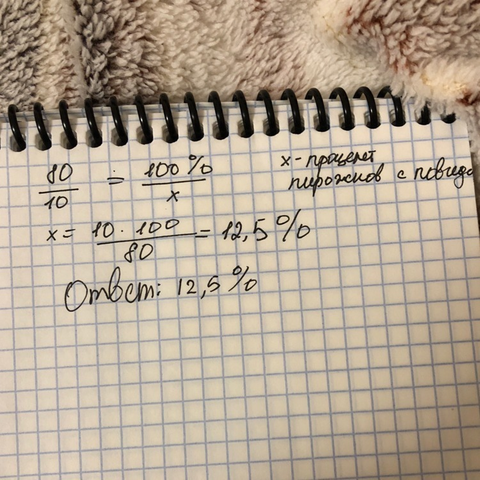 80/10 = 100%/x
x - процент
пирожков с повидл
x = 10 · 100/80 = 12,5%
Ответ: 12,5%